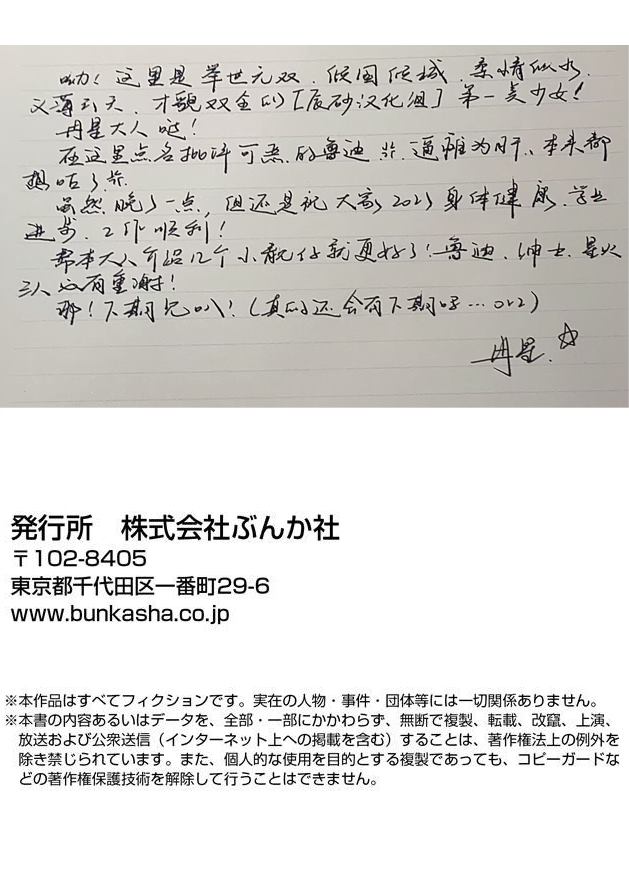 呦！这里是举世无双、倾国倾城、柔情似水、
义薄云天、才貌双全的[辰砂汉化组]第一美少女！
丹星大人哒！
在这里点名批评可恶的鲁迪弗，逼稚为肝、本来都
想咕了弗
虽然晚了一点，但还是祝大家2023身体健康、学业
进步、工作顺利！
帮本大人介绍几个小靓仔就更好了！鲁迪、绅士、星火
三人必有重谢！
那！下期见叭！(真的还会有下期吗…orz)
丹星.☆
発行所　株式会社ぶんか社
〒102-8405
東京都千代田区一番町29-6
www.bunkasha.co.jp
※本作品はすべてフィクションです。実在の人物・事件・団体等には一切関係ありません。
※本書の内容あるいはデータを、全部・一部にかかわらず、無断で複製、転載、改竄、上演、
放送および公衆送信（インターネット上への掲載を含む）することは、著作権法上の例外を
除き禁じられています。また、個人的な使用を目的とする複製であっても、コピーガードな
どの著作権保護技術を解除して行うことはできません。